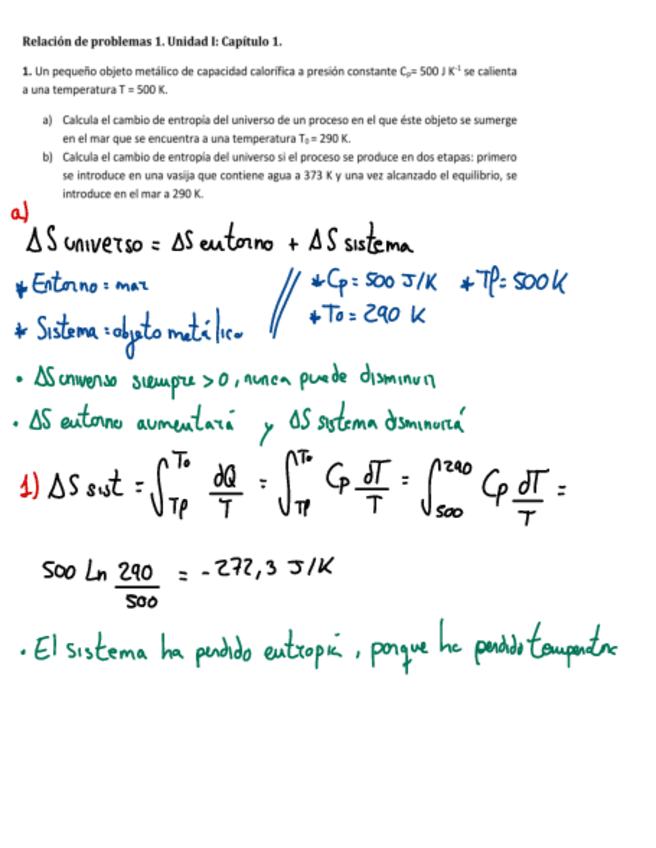 Relación de problemas 1. Unidad I: Capítulo 1.
1. Un pequeño objeto metálico de capacidad calorífica a presión constante Cₚ= 500 J K⁻¹ se calienta
a una temperatura T = 500 K.
a) Calcula el cambio de entropía del universo de un proceso en el que éste objeto se sumerge
en el mar que se encuentra a una temperatura T₀ = 290 K.
b) Calcula el cambio de entropía del universo si el proceso se produce en dos etapas: primero
se introduce en una vasija que contiene agua a 373 K y una vez alcanzado el equilibrio, se
introduce en el mar a 290 K.
a)
ΔS universo = ΔS entorno + ΔS sistema
* Entorno = mar // * Cp = 500 J/K * Tp = 500 K
* Sistema = objeto metálico * To = 290 K
• ΔS universo siempre > 0, nunca puede disminuir
• ΔS entorno aumentará y ΔS sistema disminuirá
1) ΔS sist = ∫_{Tp}^{To} dQ/T = ∫_{Tp}^{To} Cp dT/T = ∫_{500}^{290} Cp dT/T =
500 Ln 290/500 = -272,3 J/K
• El sistema ha perdido entropía, porque ha perdido temperatura